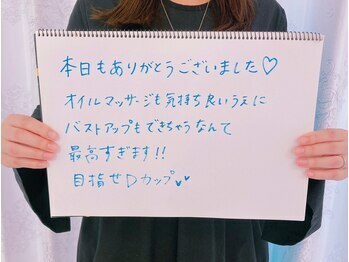 本日もありがとうございました♡
オイルマッサージも気持ち良いうえに
バストアップもできちゃうなんて
最高すぎます!!
目指せDカップ♥♥